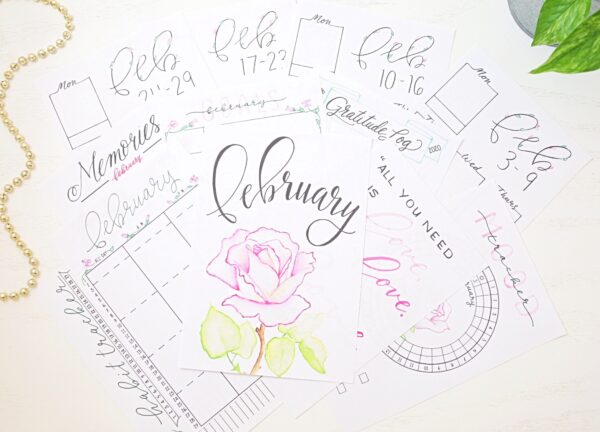 Mon
feb
24-29
feb
17-23
Mon
feb
10-16
Mon
feb
3-9
Wed
Thurs
february
Memories
february
Gratitude Log
2020
february
february
"ALL YOU NEED
IS
love.
love.
mood
tracker
habit tracker